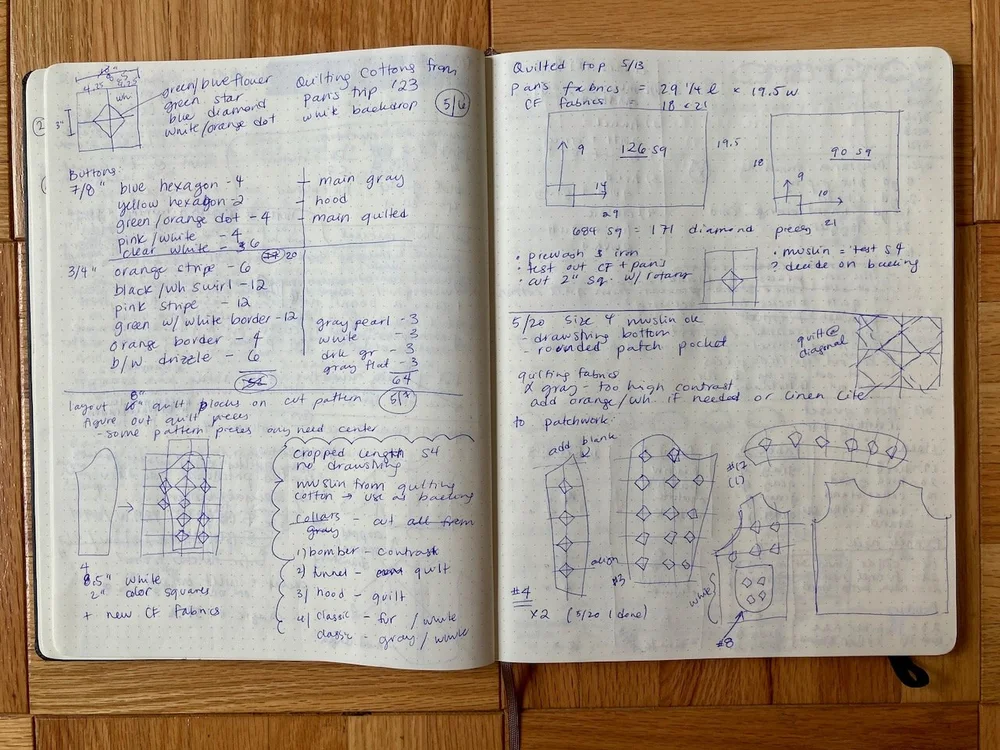 4.25
4.25
wh
3"
green/blue flower
green star
blue diamond
white/orange dot
Quilting cottons from
paris trip '23
white backdrop
5/6
Buttons:
7/8" blue hexagon - 4
yellow hexagon - 2
green/orange dot - 4
pink/white - 4
clear white - 6
20
main gray
hood
main quilted
3/4" orange stripe - 6
black/wh swirl - 12
pink stripe - 12
green w/ white border - 12
orange border - 4
b/w drizzle - 6
gray pearl - 3
white - 3
drk gr - 3
gray flat - 3
64
layout 8" quilt blocks on cut pattern
figure out quilt pieces
- some pattern pieces only need center
4
8.5" white
2" color squares
+ new CF fabrics
cropped length S4
no drawstring
muslin from quilting
cotton → use as backing
collars - cut all from
gray
1) bomber - contrast
2) funnel - quilt
3) hood - quilt
4) classic - fur / white
classic - gray / white
Quilted top 5/13
paris fabrics = 29 1/4 l × 19.5 w
CF fabrics = 18 × 21
9
126 sq
14
19.5
29
18
90 sq
9
10
21
684 sq = 171 diamond pieces
• prewash & iron
• test out CF + paris
• cut 2" sq. w/ rotary
• muslin = test S4
? decide on backing
5/20 size 4 muslin ok
- drawstring bottom
- rounded patch pocket
quilt @
diagonal
quilting fabrics
x gray - too high contrast
add orange/wh. if needed or linen lite
to patchwork:
add blank
#12
(1)
align
#3
white
#4
×2 (5/20 1 done)
#8